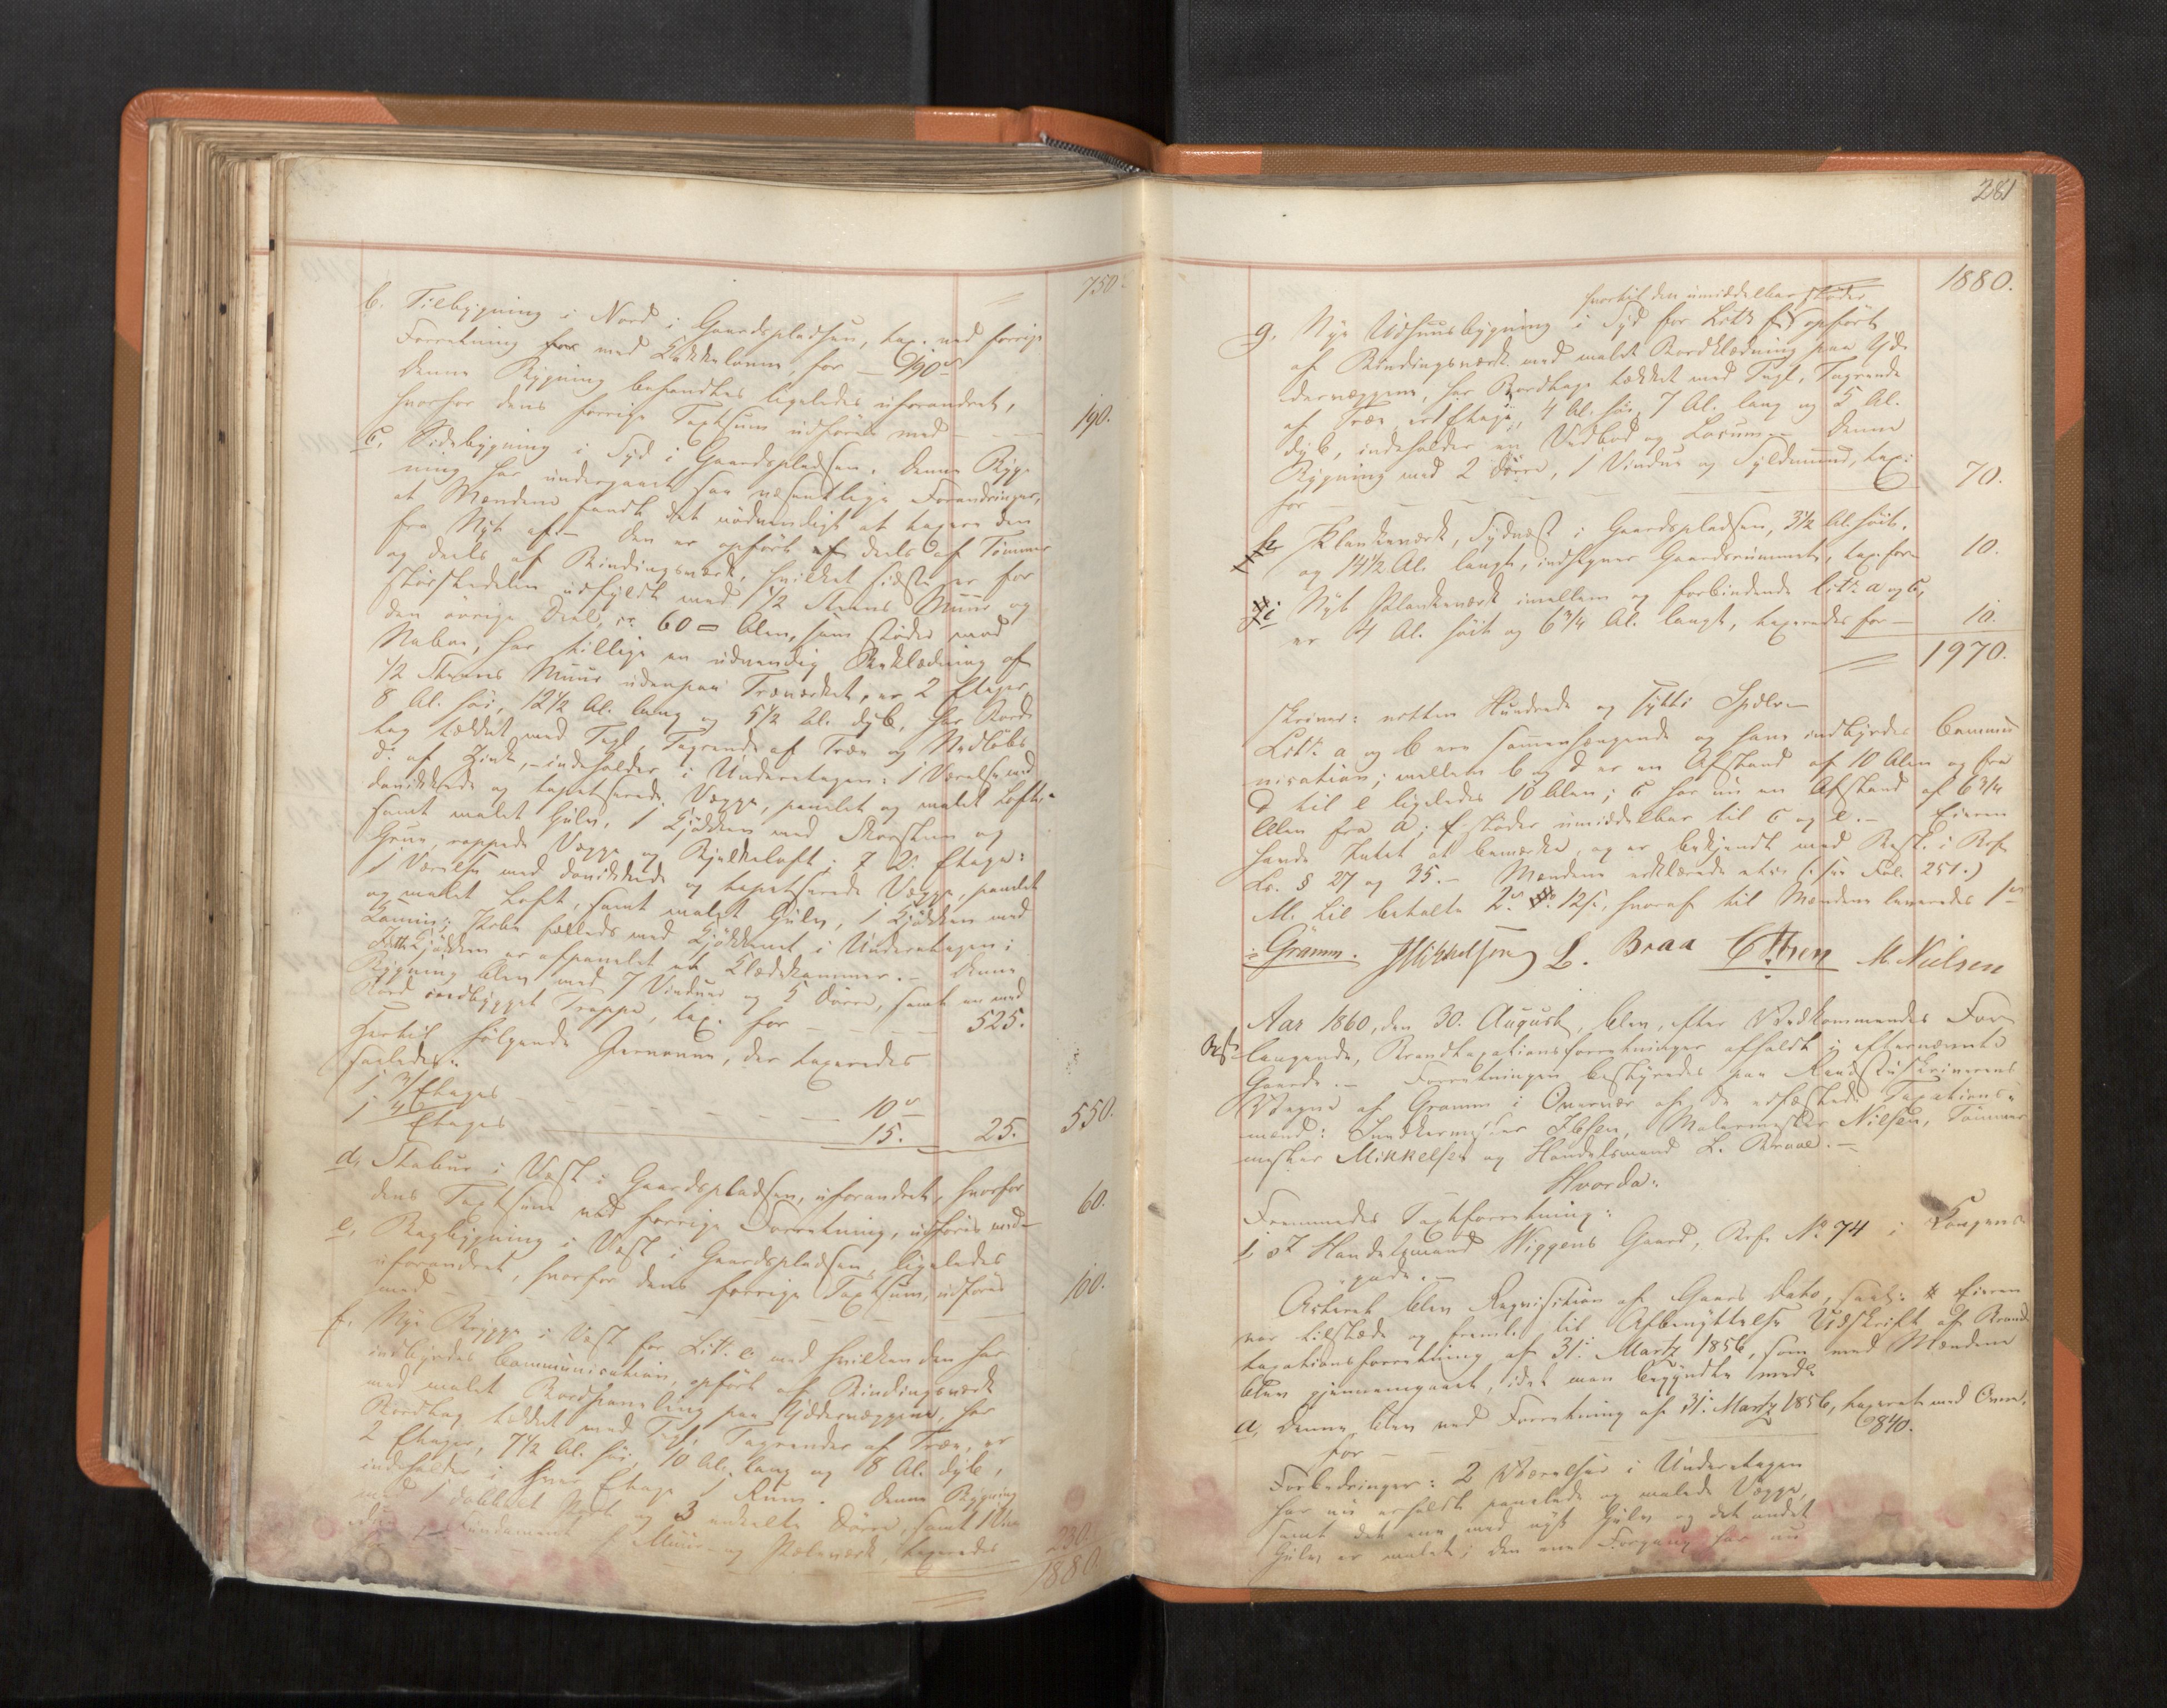 750.
b. Tilbygning i Nord i Gaardspladsen, tax. ved forrige
Forretning for med Kakkelovne, for — 190
denne Bygning befandtes ligeledes uforandret,
hvorfor dens forrige Taxtsum udføres med — 190.
c. Sidebygning i Syd i Gaardspladsen. Denne Byg-
ning har undergaaet saa væsentlige Forandringer,
at Mændene fandt det nødvendigt at taxere den
fra Nyt af. — Den er opført af deels af Tømmer
og deels af Bindingsværk, hvilket sidste er for
størstedelen udfyldt med 1/2 Steens Muur og
den øvrige Deel, ca. 60 □ Alen, som støder mod
Naboe, har tillige en udvendig Beklædning af
1/2 Steens Muur udenpaa Træværket, er 2 Etager,
8 Al. høi, 12 1/2 Al. lang og 5 1/2 Al. dyb, har Bord-
tag tækket med Tegl, Tagrende af Træe og Nedløbs
do. af Zink, — indeholder i Underetagen: 1 Værelse med
tapetserede Vægge, panelet og malet Loft,
samt malet Gulv, 1 Kjøkken med Skorsteen og
Gruve, rappede Vægge og Bjelkeloft; I 2. Etage:
1 Værelse med og tapetserede Vægge, panelet
og malet Loft, samt malet Gulv, 1 Kjøkken med
Kamin, Pibe fælleds med Kjøkkenet i Underetagen;
Kjøkken er afpanelet et Klædekammer. — Denne
Bygning blev med 7 Vinduer og 5 Døre, samt en med
Bord indbygget Trappe, tax. for — 525.
Hertil følgende Jernovne, der taxeredes
saaledes:
1 3/ Etages — 10
1 4/ Etages — 15. 25. 550.
d, Stabur i Vest i Gaardspladsen, uforandret, hvorfor
dens Taxtsum ved forrige Forretning, udføres med — 60.
e, Bagbygning i Vest i Gaardspladsen, ligeledes
uforandret, hvorfor dens forrige Taxtsum, udføres
med — 100.
f. Nye Brygge i Vest for Litr. e med hvilken den har
indbyrdes Communication, opført af Bindingsværk
med malet Bordpaneling paa Ydervæggene, har
Bordtag tækket med Tegl, Tagrender af Træe, er
2 Etager, 7 1/2 Al. høi, 10 Al. lang og 8 Al. dyb,
indeholder i hver Etage 1 Rum. Denne Bygning
med 1 dobbelt Port og 3 enkelte Døre, samt 1 Vin-
due Fundament af Muur og Pæleværk, taxeredes
230.
1880.
281
1880.
hvortil den umiddelbar støder
g. Nye Udhuusbygning i Syd for Litr. f opført
af Bindingsværk med malet Bordklædning paa Yd-
dervæggene, har Bordtag tækket med Tegl, Tagrende
af Træe, er 1 Etage, 4 Al. høi, 7 Al. lang og 5 Al.
dyb, indeholder en Vedbod og Locum. — Denne
Bygning med 2 Døre, 1 Vindue og Fyldmuur, tax.
for — 70.
h Plankeværk, Sydvest i Gaardspladsen, 3 1/2 Al. høit,
og 14 1/2 Al. langt, indhegner Gaardsrummet, tax. for — 10.
i Nyt Plankeværk imellem og forbindende Litr. a og c,
er 4 Al. høit og 6 3/4 Al. langt, taxeredes for — 10.
1970.
skriver: nitten Hundrede og Sytti Spdlr. —
Litr. a og b ere sammenhængende og have indbyrdes Commu-
nication; mellem b og d er en Afstand af 10 Alen og fra
d til e ligeledes 10 Alen; c har nu en Afstand af 6 3/4
Alen fra a; f støder umiddelbar til c og e. — Eieren
havde Intet at bemærke, og er bekjendt med Best. i Brf.
Lv. § 27 og 35. — Mændene erklærede etc. (: see Fol. 251.)
M. Lie betalte 2 12 s, hvoraf til Mændene leveredes 1
Gramm. JMikkelsen L. Braa CIbsen M. Nielsen
Aar 1860, den 30. August, blev, efter Vedkommendes For-
langende, Brandtaxationsforretninger afholdt i efternævnte
Gaarde. — Forretningen bestyredes paa Raadstueskriverens
Vegne af Gramm i Overvær af de edfæstede Taxations-
mænd: Snedkermester Ibsen, Malermester Nilsen, Tømmer-
mester Mikkelsen og Handelsmand L. Braae. —
Hvorda:
Fremmedes Taxtforretning:
1, ov. Handelsmand Wiggens Gaard, Brf. No. 74 i Kongens-
gade. —
Acteret blev Requisition af Gaars Dato, saal: * Eieren
var tilstede og freml. til Afbenyttelse Udskrift af Brand-
taxationsforretning af 31. Martz 1856, som med Mændene
blev gjennemgaaet, idet man begyndte med:
a, Denne blev ved Forretning af 31. Martz 1856, taxeret med Ovne,
for — 840.
Forbedringer: 2 Værelser i Underetagen
har nu erholdt panelede og malede Vægge,
samt det ene med nyt Gulv og det andet
Gulv er malet; den ene Forgang har nu